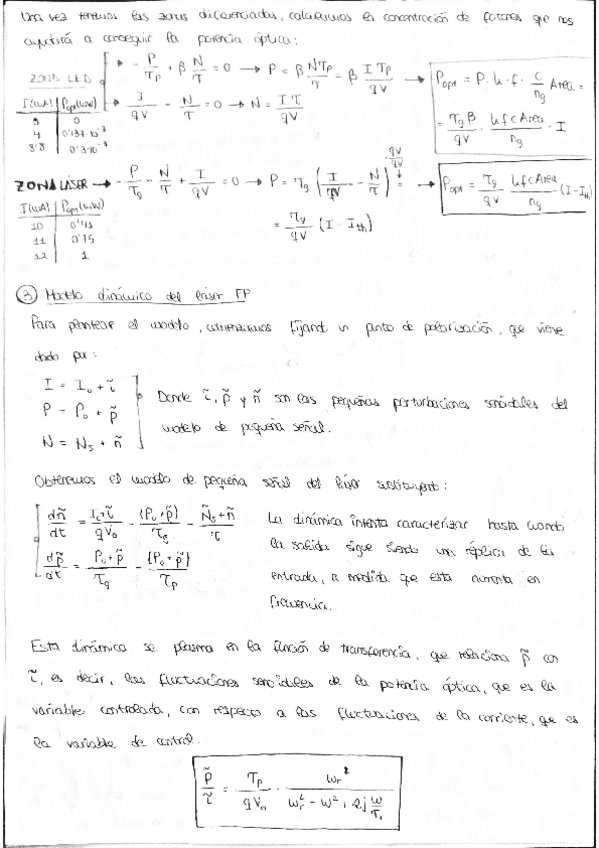 Una vez tenemos las zonas diferenciadas, calculamos la concentración de fotones que nos
ayudará a conseguir la potencia óptica:
ZONA LED
- P/τp + β N/τ = 0 → P = β Nτp/τ = β I τp/qV → Popt = P · h · f · c/ng Area =
I/qV - N/τ = 0 → N = Iτ/qV
= τg β/qV · h f c Area/ng · I
I(mA) | Popt(mW)
0
4 | 0'137·10⁻³
8'8 | 0'3·10⁻³
ZONA LÁSER → - P/τg - N/τ + I/qV = 0 → P = τg (I/qV - N/τ) · qV/qV = → Popt = τg/qV h f c Area/ng (I - Ith)
= τg/qV (I - Ith)
I(mA) | Popt(mW)
10 | 0'43
11 | 0'75
12 | 1
③ Modelo dinámico del láser FP
Para plantear el modelo, comenzamos fijando un punto de polarización, que viene
dado por:
I = I₀ + ĩ
P = P₀ + p̃
N = Ns + ñ
Donde ĩ, p̃ y ñ son las pequeñas perturbaciones senoidales del
modelo de pequeña señal.
Obtenemos el modelo de pequeña señal del láser sustituyendo:
dñ/dt = I₀+ĩ/qVa - (P₀+p̃)/τg - Ñs+ñ/τ
dp̃/dt = P₀+p̃/τg - (P₀+p̃)/τp
La dinámica intenta caracterizar hasta cuando
la salida sigue siendo una réplica de la
entrada, a medida que esta aumenta en
frecuencia.
Esta dinámica se plasma en la función de transferencia, que relaciona p̃ con
ĩ, es decir, las fluctuaciones senoidales de la potencia óptica, que es la
variable controlada, con respecto a las fluctuaciones de la corriente, que es
la variable de control.
p̃/ĩ = τp/qVa · ωr²/ωr² - ω² + 2j ω/τ